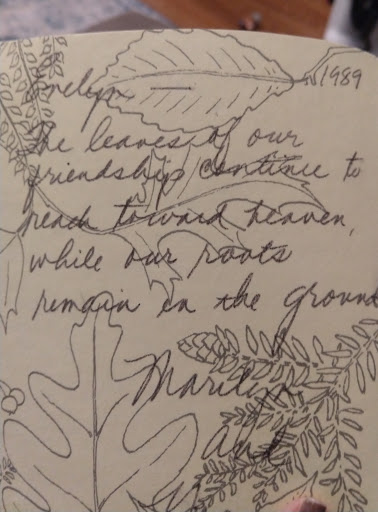 Evelyn — 1989
The leaves of our
friendship continue to
reach toward heaven,
while our roots
remain in the ground
Marilyn
and